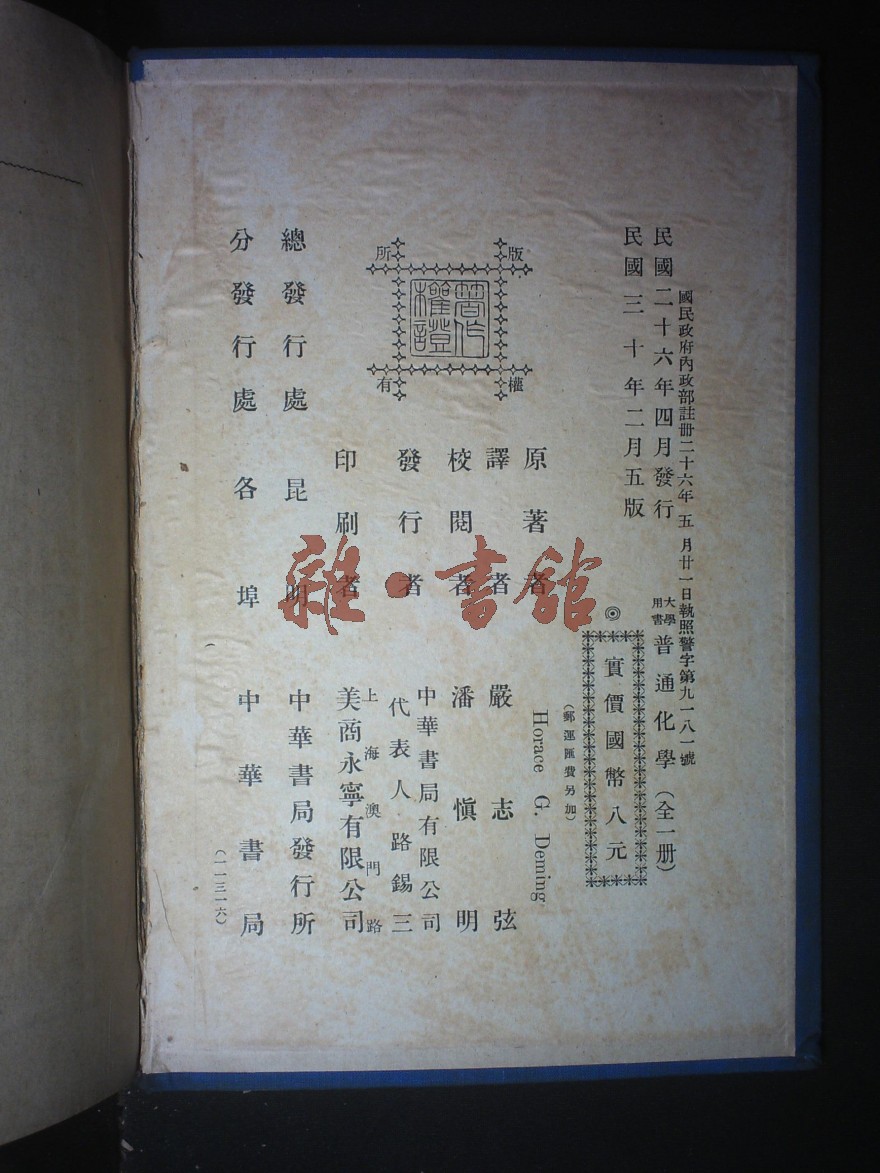 國民政府內政部註冊二十六年五月廿一日執照警字第九一八一號
民國二十六年四月發行
民國三十年二月五版
大學用書 普通化學（全一册）
◎實價國幣八元
（郵運匯費另加）
原著者 Horace G. Deming
譯者 嚴志弦
校閱者 潘慎明
發行者 中華書局有限公司
代表人路錫三
印刷者 上海澳門路
美商永寧有限公司
總發行處 昆明 中華書局發行所
分發行處 各埠 中華書局
（一一三一六）
版權所有
著作權證
雜·書館